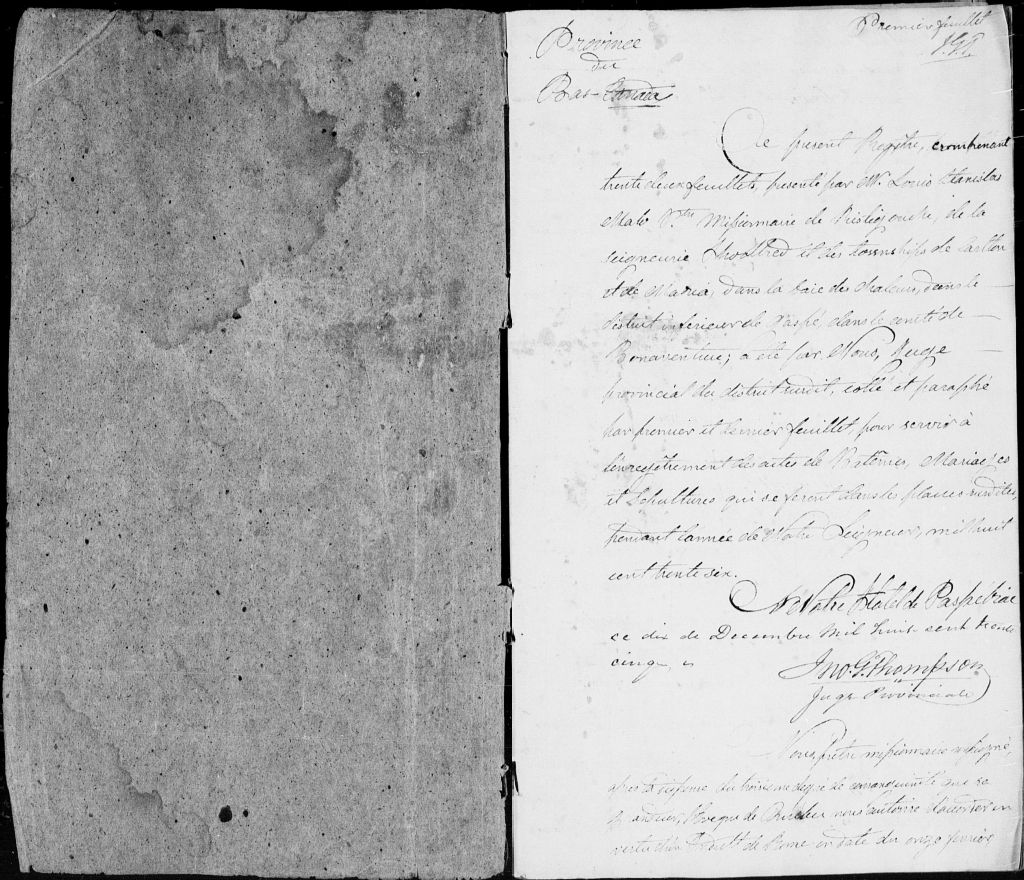 Premier feuillet
Province
du
Bas-Canada
Ce présent Registre, comprenant
trente deux feuillets, présenté par M. Louis Stanislas
Malo Ptre Missionnaire de Ristigouche, de la
seigneurie Shoolbred et des townships de Carlton
et de Maria, dans la baie des Chaleurs, dans le
district inférieur de Gaspé, dans le comté de
Bonaventure; a été par Nous, Juge
provincial du district susdit, cotté et paraphé
par premier et dernier feuillet pour servir à
l'enregitrement des actes de Batêmes, Mariages
et Sépultures qui se feront dans les places susdites,
pendant l'année de Notre Seigneur, mil huit
cent trente six.
A Notre Hotel de Paspébiac
ce dix de Decembre Mil huit cent trente
cinq
Jno. G. Thompson
Juge Provinciale
Nous, prêtre missionnaire soussigné,
après la dispense du troisième degré de consanguinité que
l'Evêque de Quebec nous autorise d'accorder en
vertu d'un Indult de Rome en date du onze février